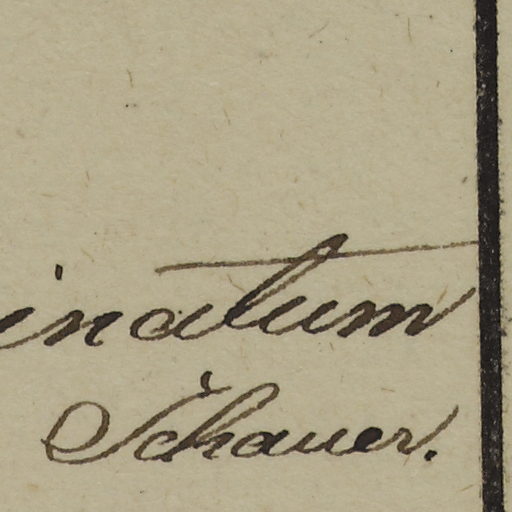 inatum
Schauer.